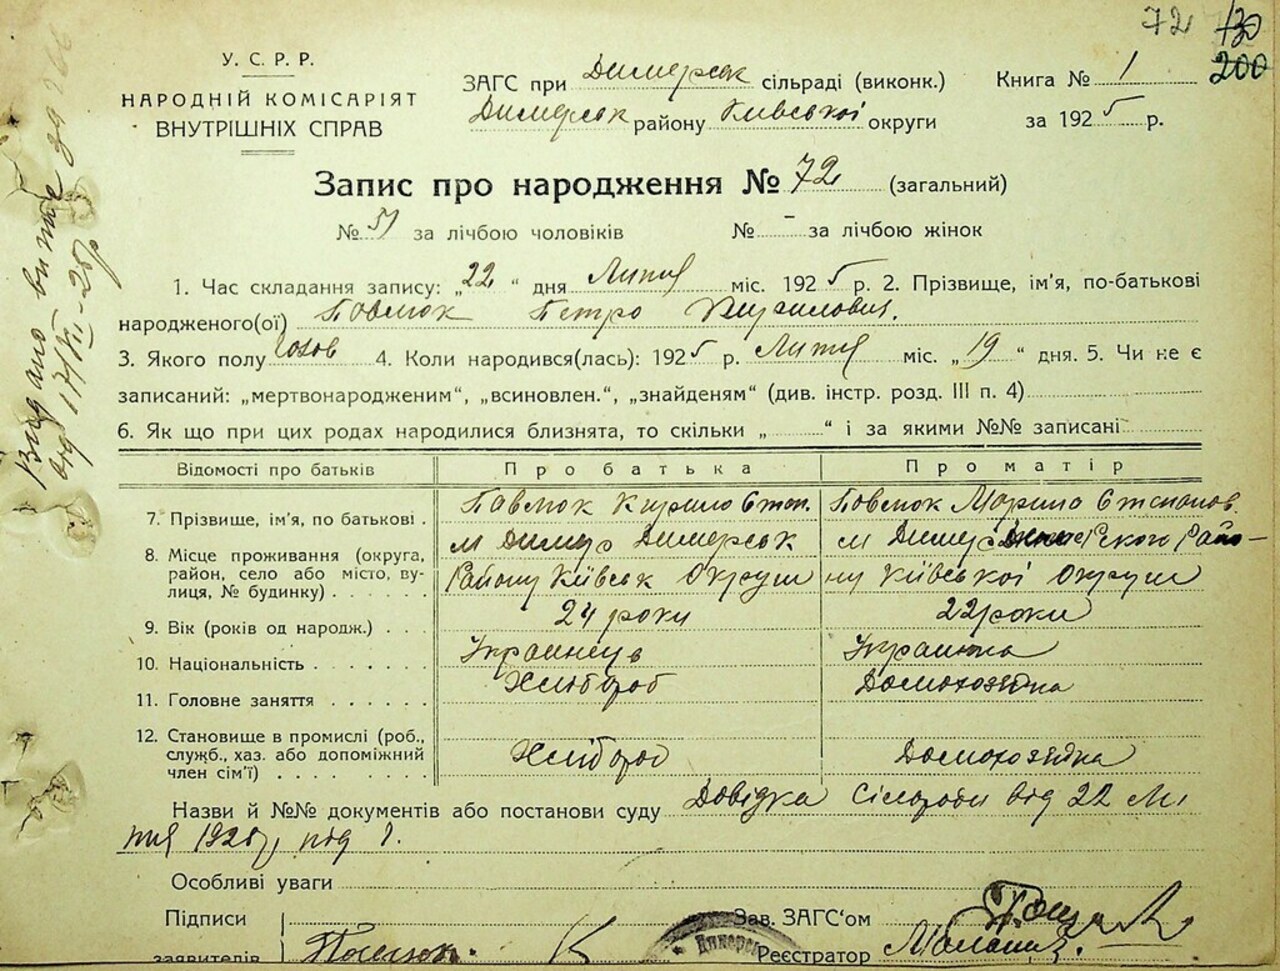 72 130
200
У. С. Р. Р.
НАРОДНІЙ КОМІСАРІЯТ
ВНУТРІШНІХ СПРАВ
ЗАГС при Димерськ сільраді (виконк.)
Димерськ району Київської округи
Книга № 1
за 1925 р.
Запис про народження № 72 (загальний)
№ 51 за лічбою чоловіків № - за лічбою жінок
1. Час складання запису: „22 “ дня Лютня міс. 1925 р. 2. Прізвище, ім'я, по-батькові
народженого(ої) Павлюк Петро Кирилович.
3. Якого полу 4. Коли народився(лась): 1925 р. Лютня міс. „19 “ дня. 5. Чи не є
записаний: „мертвонародженим“, „всиновлен.“, „знайденям“ (див. інстр. розд. III п. 4)
6. Як що при цих родах народилися близнята, то скільки „ “ і за якими №№ записані
Відомості про батьків Про батька Про матір
7. Прізвище, ім'я, по батькові . Павлюк Кирило Степ. Павлюк Марина Степанов.
8. Місце проживання (округа, м Димер Димерськ м Димер
район, село або місто, ву- Району Київськ Округи ну Київської Округи
лиця, № будинку) . . . . . .
9. Вік (років од народж.) . . . 24 роки 22 роки
10. Національність . . . . . . . Украинець Украинка
11. Головне заняття . . . . . . Хлібороб Домохозяйка
12. Становище в промислі (роб.,
служб., хаз. або допоміжний Хлібороб Домохозяйка
член сім'ї) . . . . . . . . .
Назви й №№ документів або постанови суду Довідка Сілради від 22 Лю
тня 1925 р під
Особливі уваги
Підписи Зав. ЗАГС‘ом
заявителів Павлюк. Реєстратор
Видано витяг за
від 17/XII-25 р